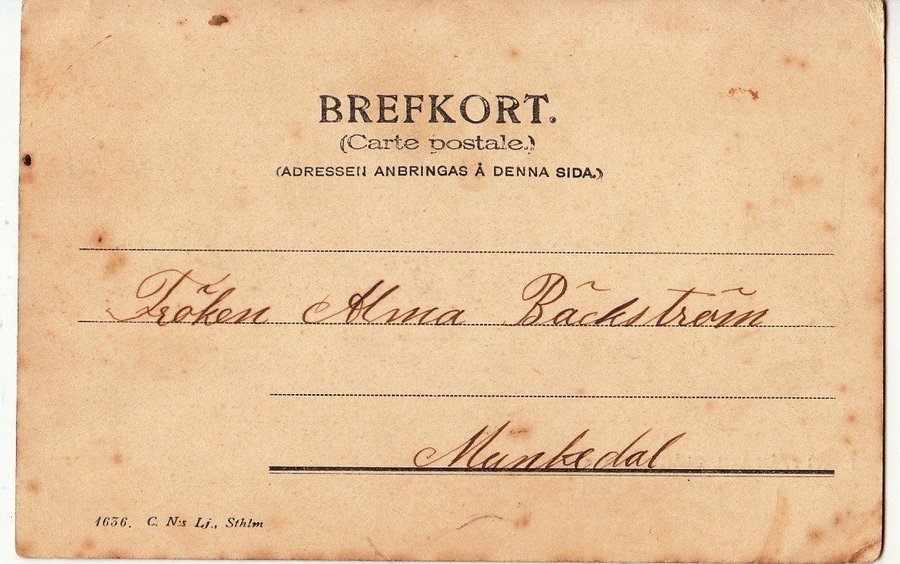 BREFKORT.
(Carte postale.)
(ADRESSEN ANBRINGAS Å DENNA SIDA.)
Fröken Alma Bäckström
Munkedal
1636. C. N:s Lj., Sthlm